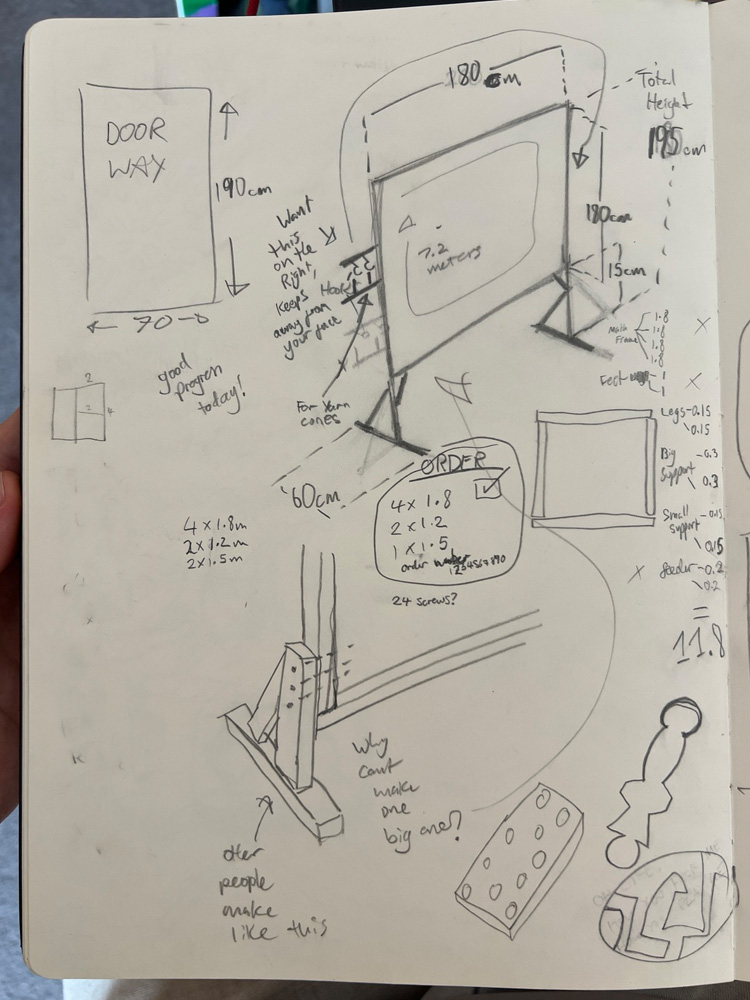 DOOR
WAY
190cm
70
180cm
Total
Height
195cm
Want
this
on the
Right,
keeps
away from
your face
Hook
7.2
meters
180cm
15cm
Main
Frame
1.8
1.8
1.8
1.8
X
Feet
1
1
X
For Yarn
cones
good
progress
today!
2
2
4
60cm
Legs-0.15
0.15
Big
Support
-0.3
0.3
Small
support
-0.15
0.15
X
feeder-0.2
0.2
=
11.8
ORDER
4 x 1.8
2 x 1.2
1 x 1.5
order number
1234567890
4 x 1.8m
2 x 1.2m
2 x 1.5m
24 screws?
Why
cant
make
one
big one?
other
people
make
like this